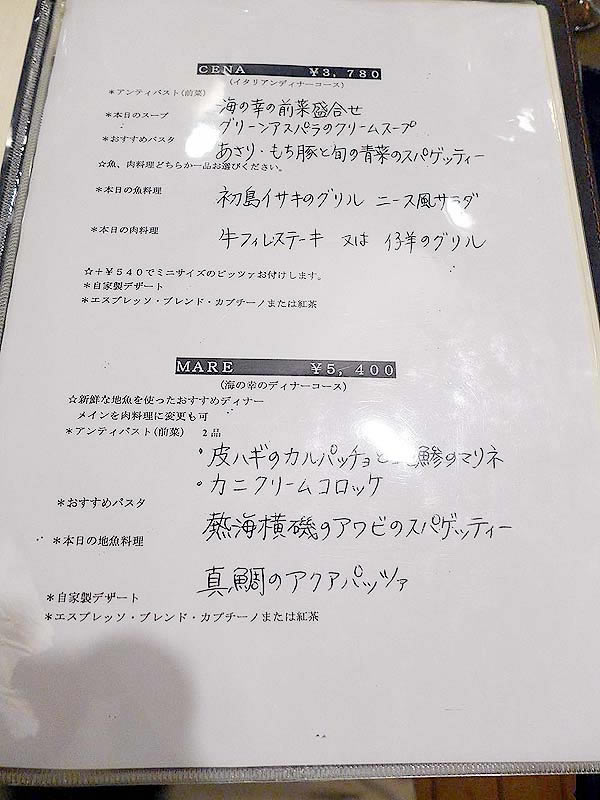 CENA ￥3,780
(イタリアンディナーコース)
＊アンティパスト(前菜) 海の幸の前菜盛合せ
＊本日のスープ グリーンアスパラのクリームスープ
＊おすすめパスタ あさり・もち豚と旬の青菜のスパゲッティー
☆魚、肉料理どちらか一品お選びください。
＊本日の魚料理 初島イサキのグリル ニース風サラダ
＊本日の肉料理 牛フィレステーキ 又は 仔羊のグリル
☆＋￥540でミニサイズのピッツァお付けします。
＊自家製デザート
＊エスプレッソ・ブレンド・カプチーノまたは紅茶
MARE ￥5,400
(海の幸のディナーコース)
☆新鮮な地魚を使ったおすすめディナー
メインを肉料理に変更も可
＊アンティパスト(前菜) 2品
・皮ハギのカルパッチョと 鯵のマリネ
・カニクリームコロッケ
＊おすすめパスタ 熱海横磯のアワビのスパゲッティー
＊本日の地魚料理 真鯛のアクアパッツァ
＊自家製デザート
＊エスプレッソ・ブレンド・カプチーノまたは紅茶